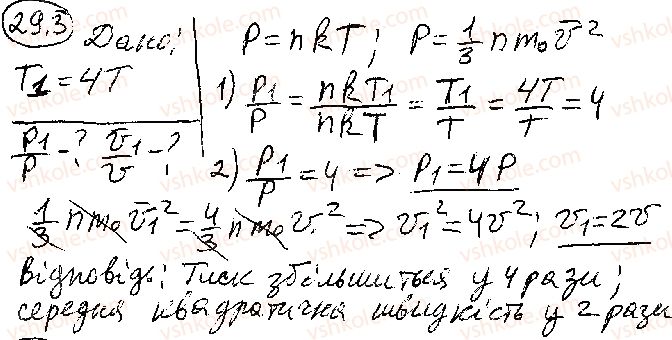 29.3 Дано: P = nkT; P = 1/3 n m₀ v̄²
T₁ = 4T
1) P₁/P = nkT₁/nkT = T₁/T = 4T/T = 4
P₁/P - ? v̄₁/v̄ - ?
2) P₁/P = 4 => P₁ = 4P
1/3 n m₀ v̄₁² = 4/3 n m₀ v̄² => v̄₁² = 4v̄²; v₁ = 2v
Відповідь: Тиск збільшиться у 4 рази;
середня квадратична швидкість у 2 рази